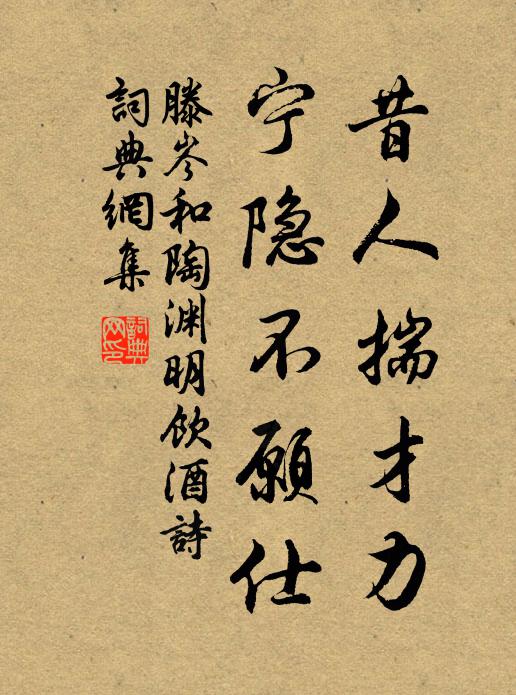 昔人揣才力
宁隐不愿仕
滕岑和陶渊明饮酒詩
詞典網集
詞典網印